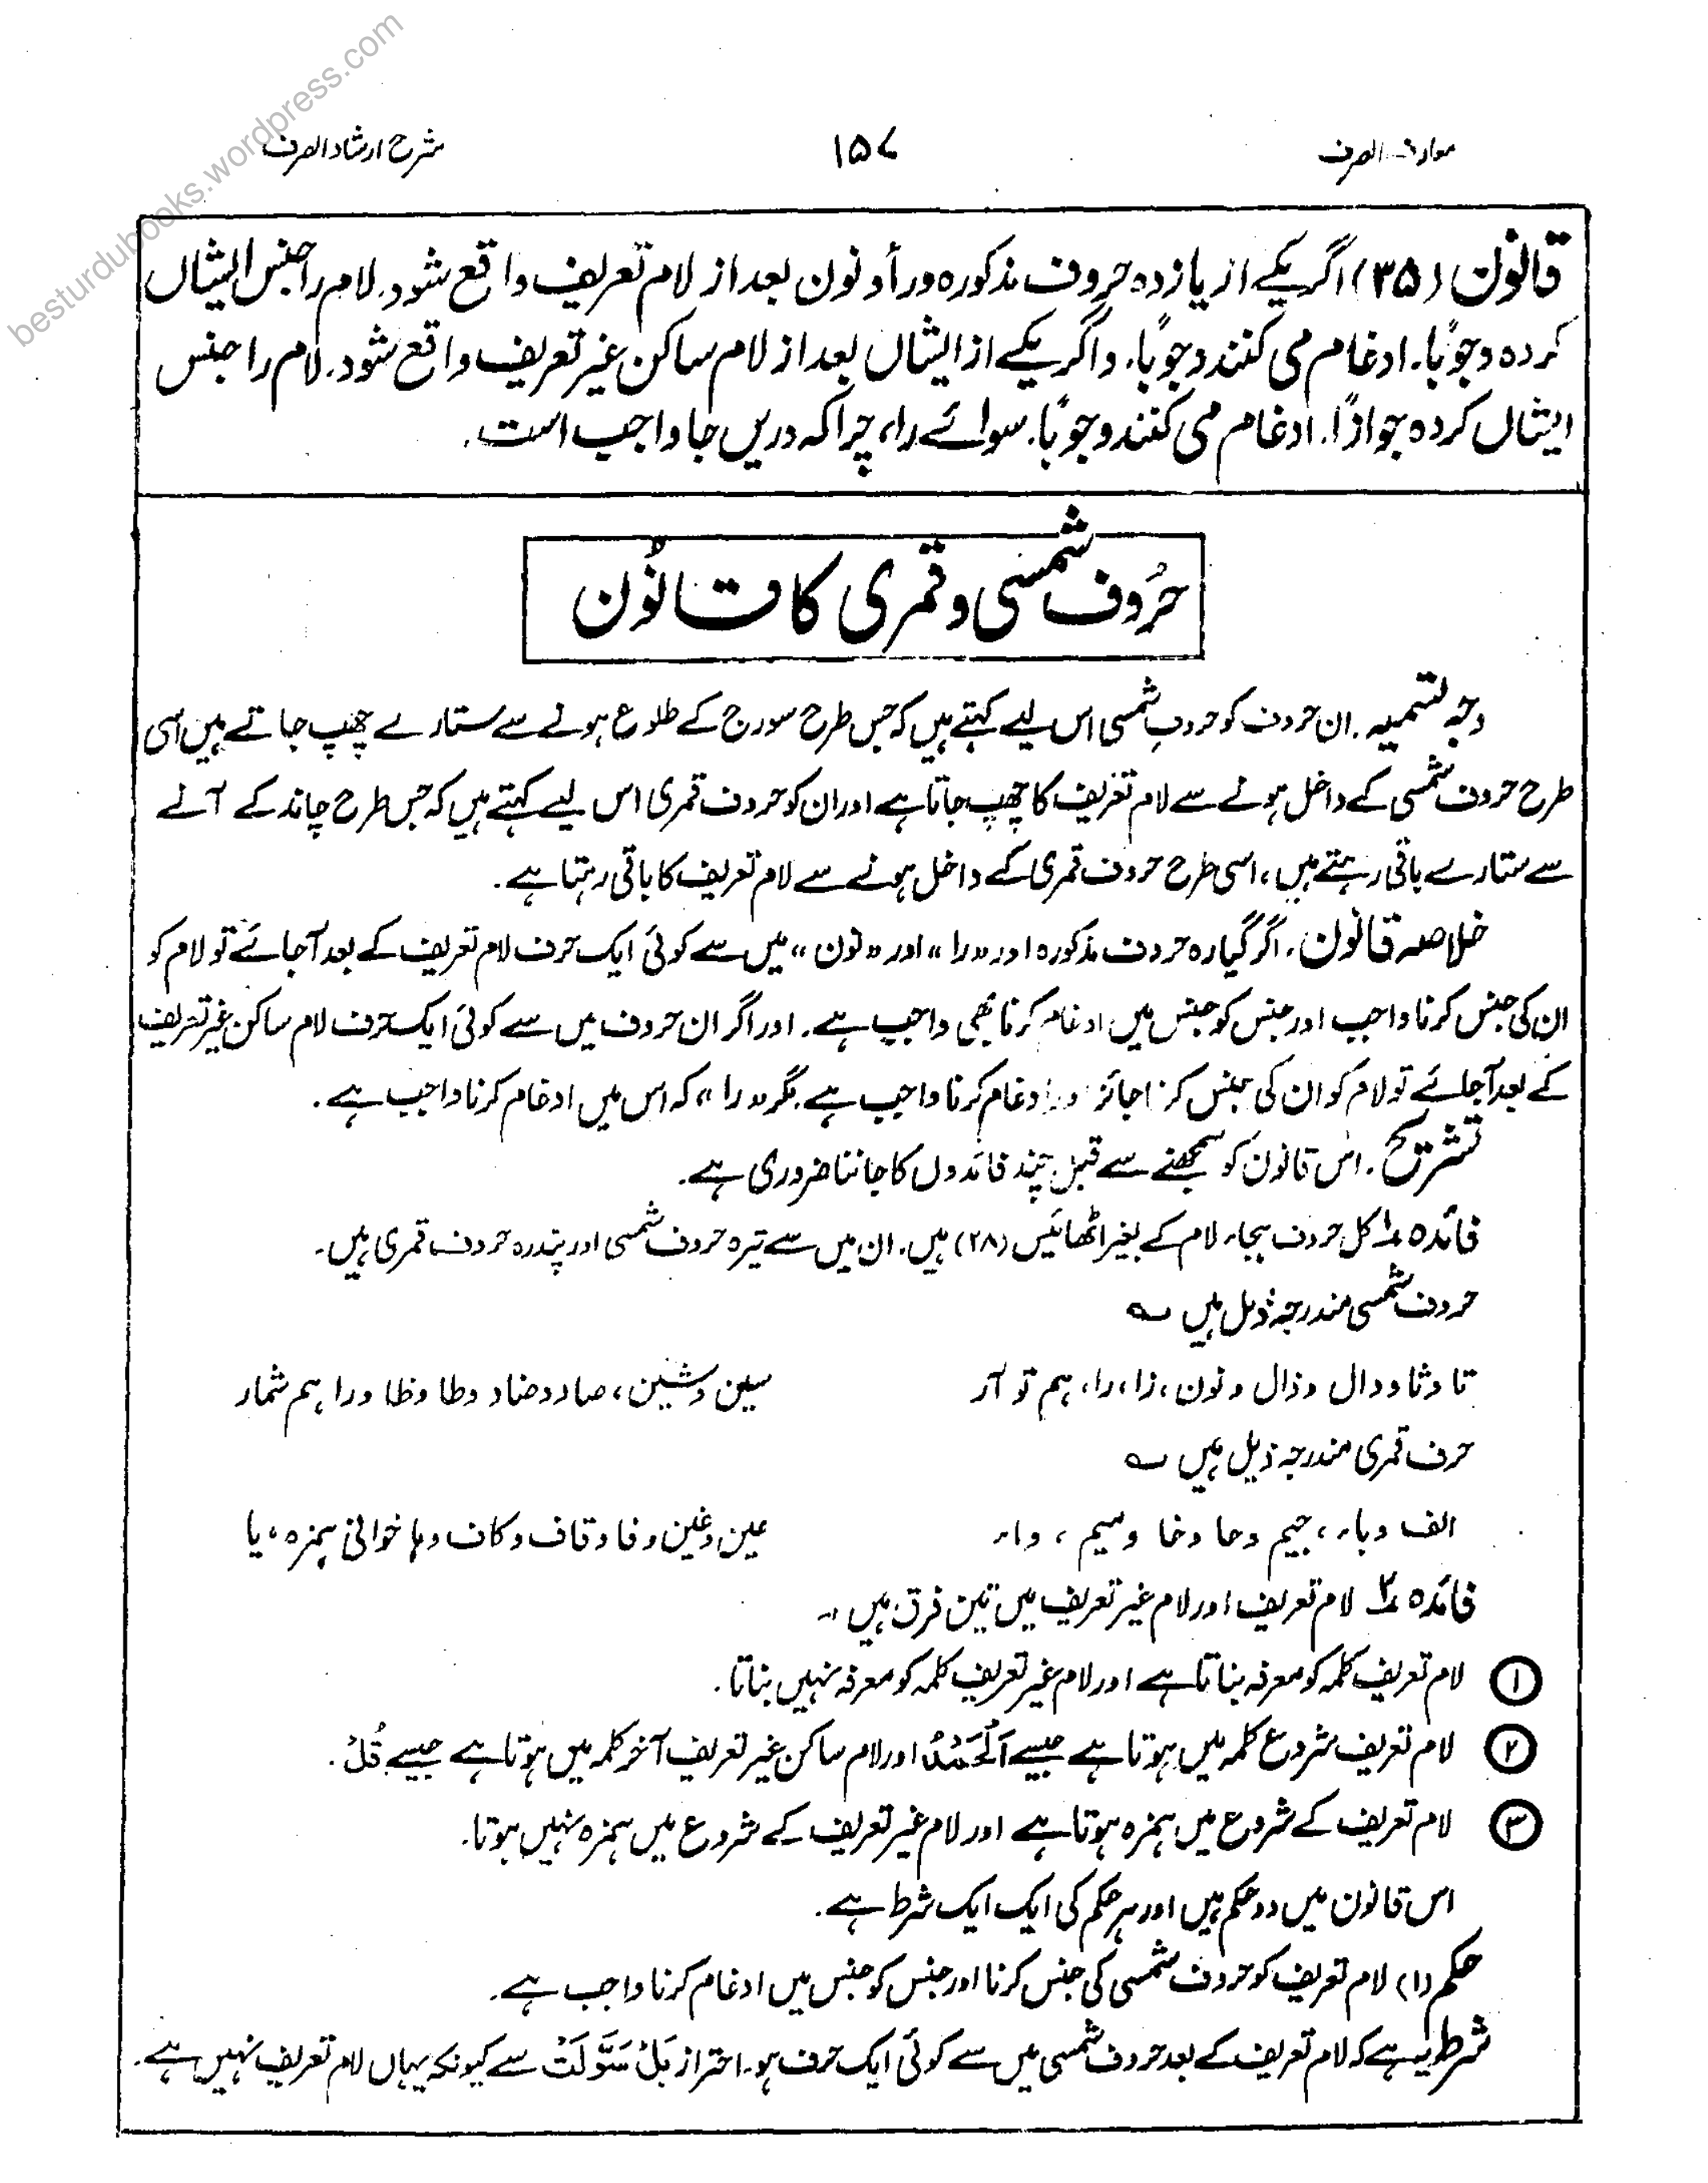 besturdubooks.wordpress.com
معارف الصرف
۱۵۷
شرح ارشاد الصرف
قانون (۳۵) اگر یکے از یازدہ حروف مذکورہ و را و نون بعد از لام تعریف واقع شود. لام را جنس ایشاں
کردہ وجوبًا. ادغام می کنند وجوبًا. و اگر یکے از ایشاں بعد از لام ساکن غیر تعریف واقع شود. لام را جنس
ایشاں کردہ جوازًا. ادغام می کنند وجوبًا. سوائے راء چرا کہ دریں جا واجب است.
حُروف شمسی و قمری کا قانُون
وجہ تسمیہ. ان حروف کو حروفِ شمسی اس لیے کہتے ہیں کہ جس طرح سورج کے طلوع ہونے سے ستارے چھپ جاتے ہیں اسی
طرح حروف شمسی کے داخل ہونے سے لام تعریف کا چھپ جاتا ہے اور ان کو حروف قمری اس لیے کہتے ہیں کہ جس طرح چاند کے آنے
سے ستارے باقی رہتے ہیں، اسی طرح حروف قمری کے داخل ہونے سے لام تعریف کا باقی رہتا ہے.
خلاصہ قانون. اگر گیارہ حروف مذکورہ اور "را" اور "نون" میں سے کوئی ایک حرف لام تعریف کے بعد آجائے تو لام کو
ان کی جنس کرنا واجب اور جنس کو جنس میں ادغام کرنا بھی واجب ہے. اور اگر ان حروف میں سے کوئی ایک حرف لام ساکن غیر تعریف
کے بعد آجائے تو لام کو ان کی جنس کرنا جائز اور ادغام کرنا واجب ہے. مگر "را" کہ اس میں ادغام کرنا واجب ہے.
تشریح. اس قانون کو سمجھنے سے قبل چند فائدوں کا جاننا ضروری ہے.
فائدہ ۱ کل حروف ہجاء لام کے بغیر اٹھائیس (۲۸) ہیں. ان میں سے تیرہ حروف شمسی اور پندرہ حروف قمری ہیں.
حروف شمسی مندرجہ ذیل ہیں ؎
تا و ثا و دال و ذال و نون، زا، را، ہم تو آر سین و شین، صاد و ضاد و طا و ظا و را ہم شمار
حرف قمری مندرجہ ذیل ہیں ؎
الف و باء، جیم و حا و خا و میم، واء عین و غین و فا و قاف و کاف و ہا خوانی ہمزہ، یا
فائدہ ۲ لام تعریف اور لام غیر تعریف میں تین فرق ہیں ۔۔
① لام تعریف کلمہ کو معرفہ بناتا ہے اور لام غیر تعریف کلمہ کو معرفہ نہیں بناتا.
② لام تعریف شروع کلمہ میں ہوتا ہے جیسے اَلْحَمْدُ اور لام ساکن غیر تعریف آخر کلمہ میں ہوتا ہے جیسے قُلْ.
③ لام تعریف کے شروع میں ہمزہ ہوتا ہے اور لام غیر تعریف کے شروع میں ہمزہ نہیں ہوتا.
اس قانون میں دو حکم ہیں اور ہر حکم کی ایک ایک شرط ہے.
حکم (۱) لام تعریف کو حروف شمسی کی جنس کرنا اور جنس کو جنس میں ادغام کرنا واجب ہے.
شرط یہ ہے کہ لام تعریف کے بعد حروف شمسی میں سے کوئی ایک حرف ہو. احتراز بَلْ سَوَّلَتْ سے کیونکہ یہاں لام تعریف نہیں ہے.